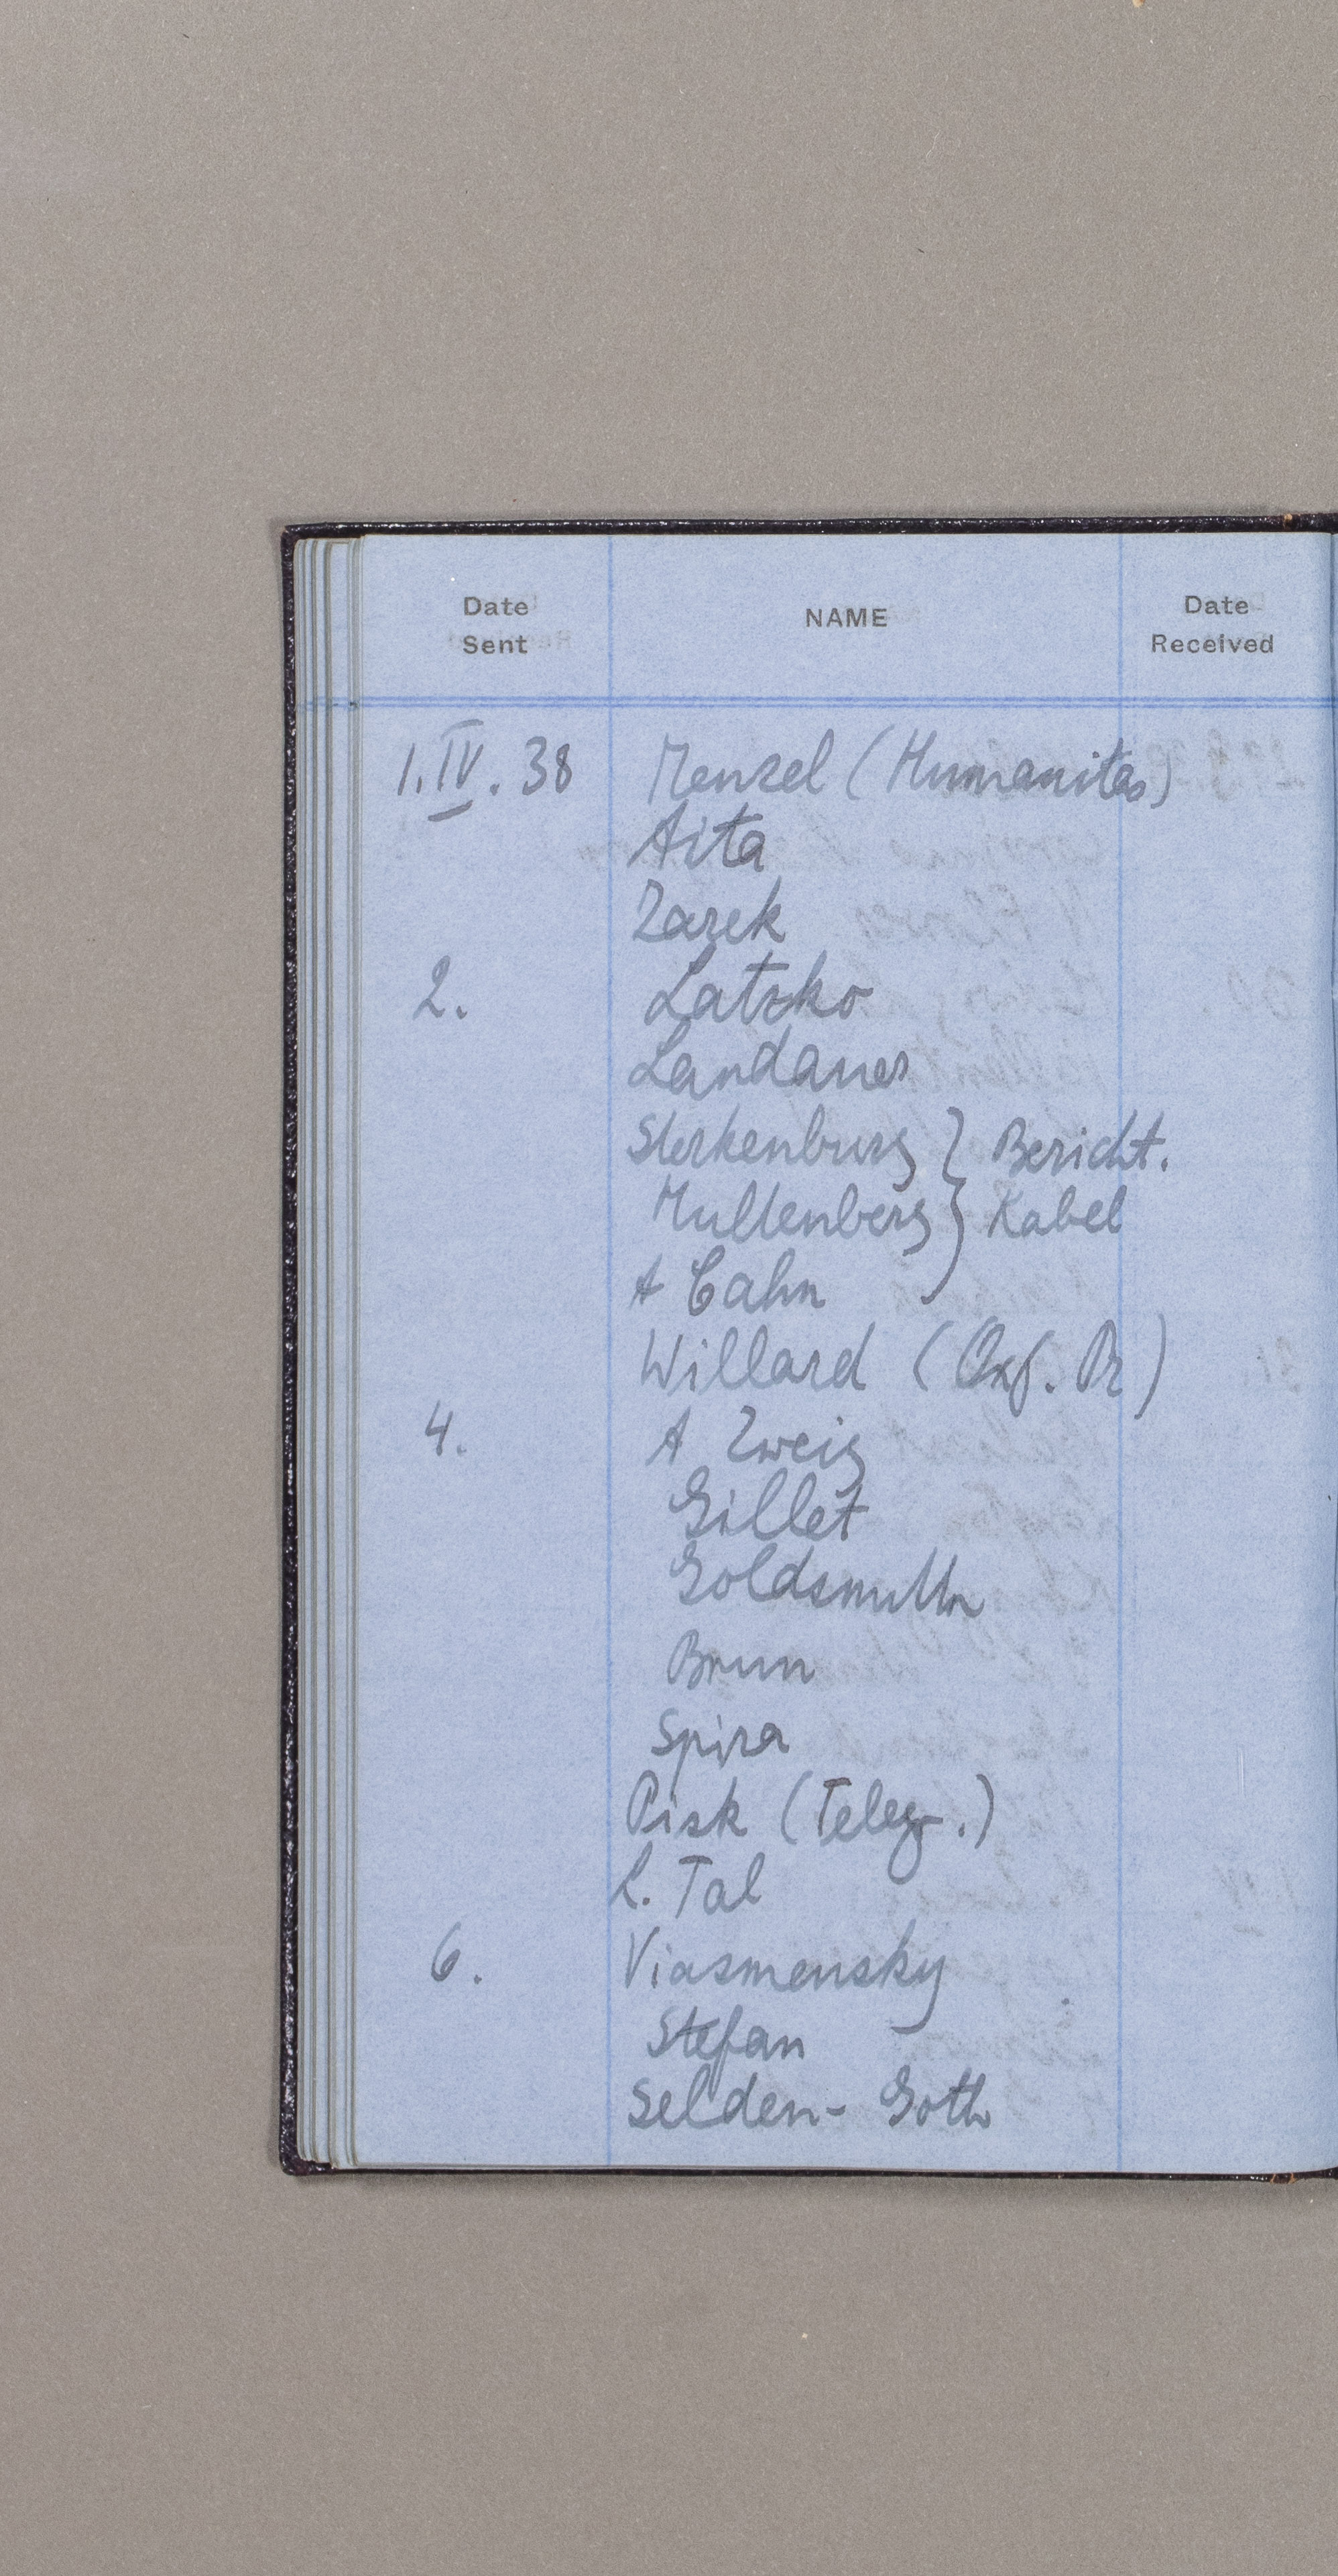 Date Sent NAME Date Received
1.IV.38 Menzel (Humanitas)
Aita
Zarek
2. Latzko
Landauer
Sterkenburg } Bericht.
Mullenberg } Kabel
A Cahn
Willard (Oxf. Pr)
4. A Zweig
Gillet
Goldsmith
Brun
Spira
Pisk (Telegr.)
L. Tal
6. Viasmensky
Stefan
Selden-Goth